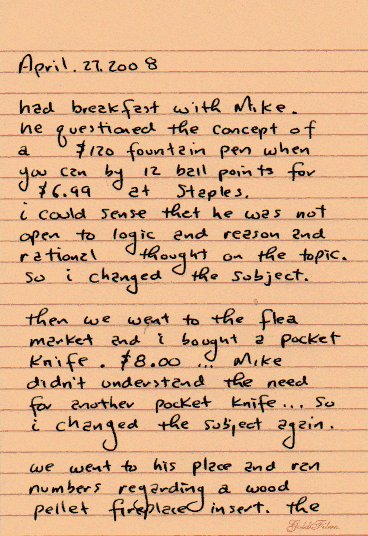 April. 27. 2008
had breakfast with Mike.
he questioned the concept of
a $120 fountain pen when
you can by 12 ball points for
$6.99 at Staples.
i could sense that he was not
open to logic and reason and
rational thought on the topic.
So i changed the subject.
then we went to the flea
market and i bought a pocket
Knife. $8.00 ... Mike
didn't understand the need
for another pocket knife... So
i changed the subject again.
we went to his place and ran
numbers regarding a wood
pellet fireplace insert. the